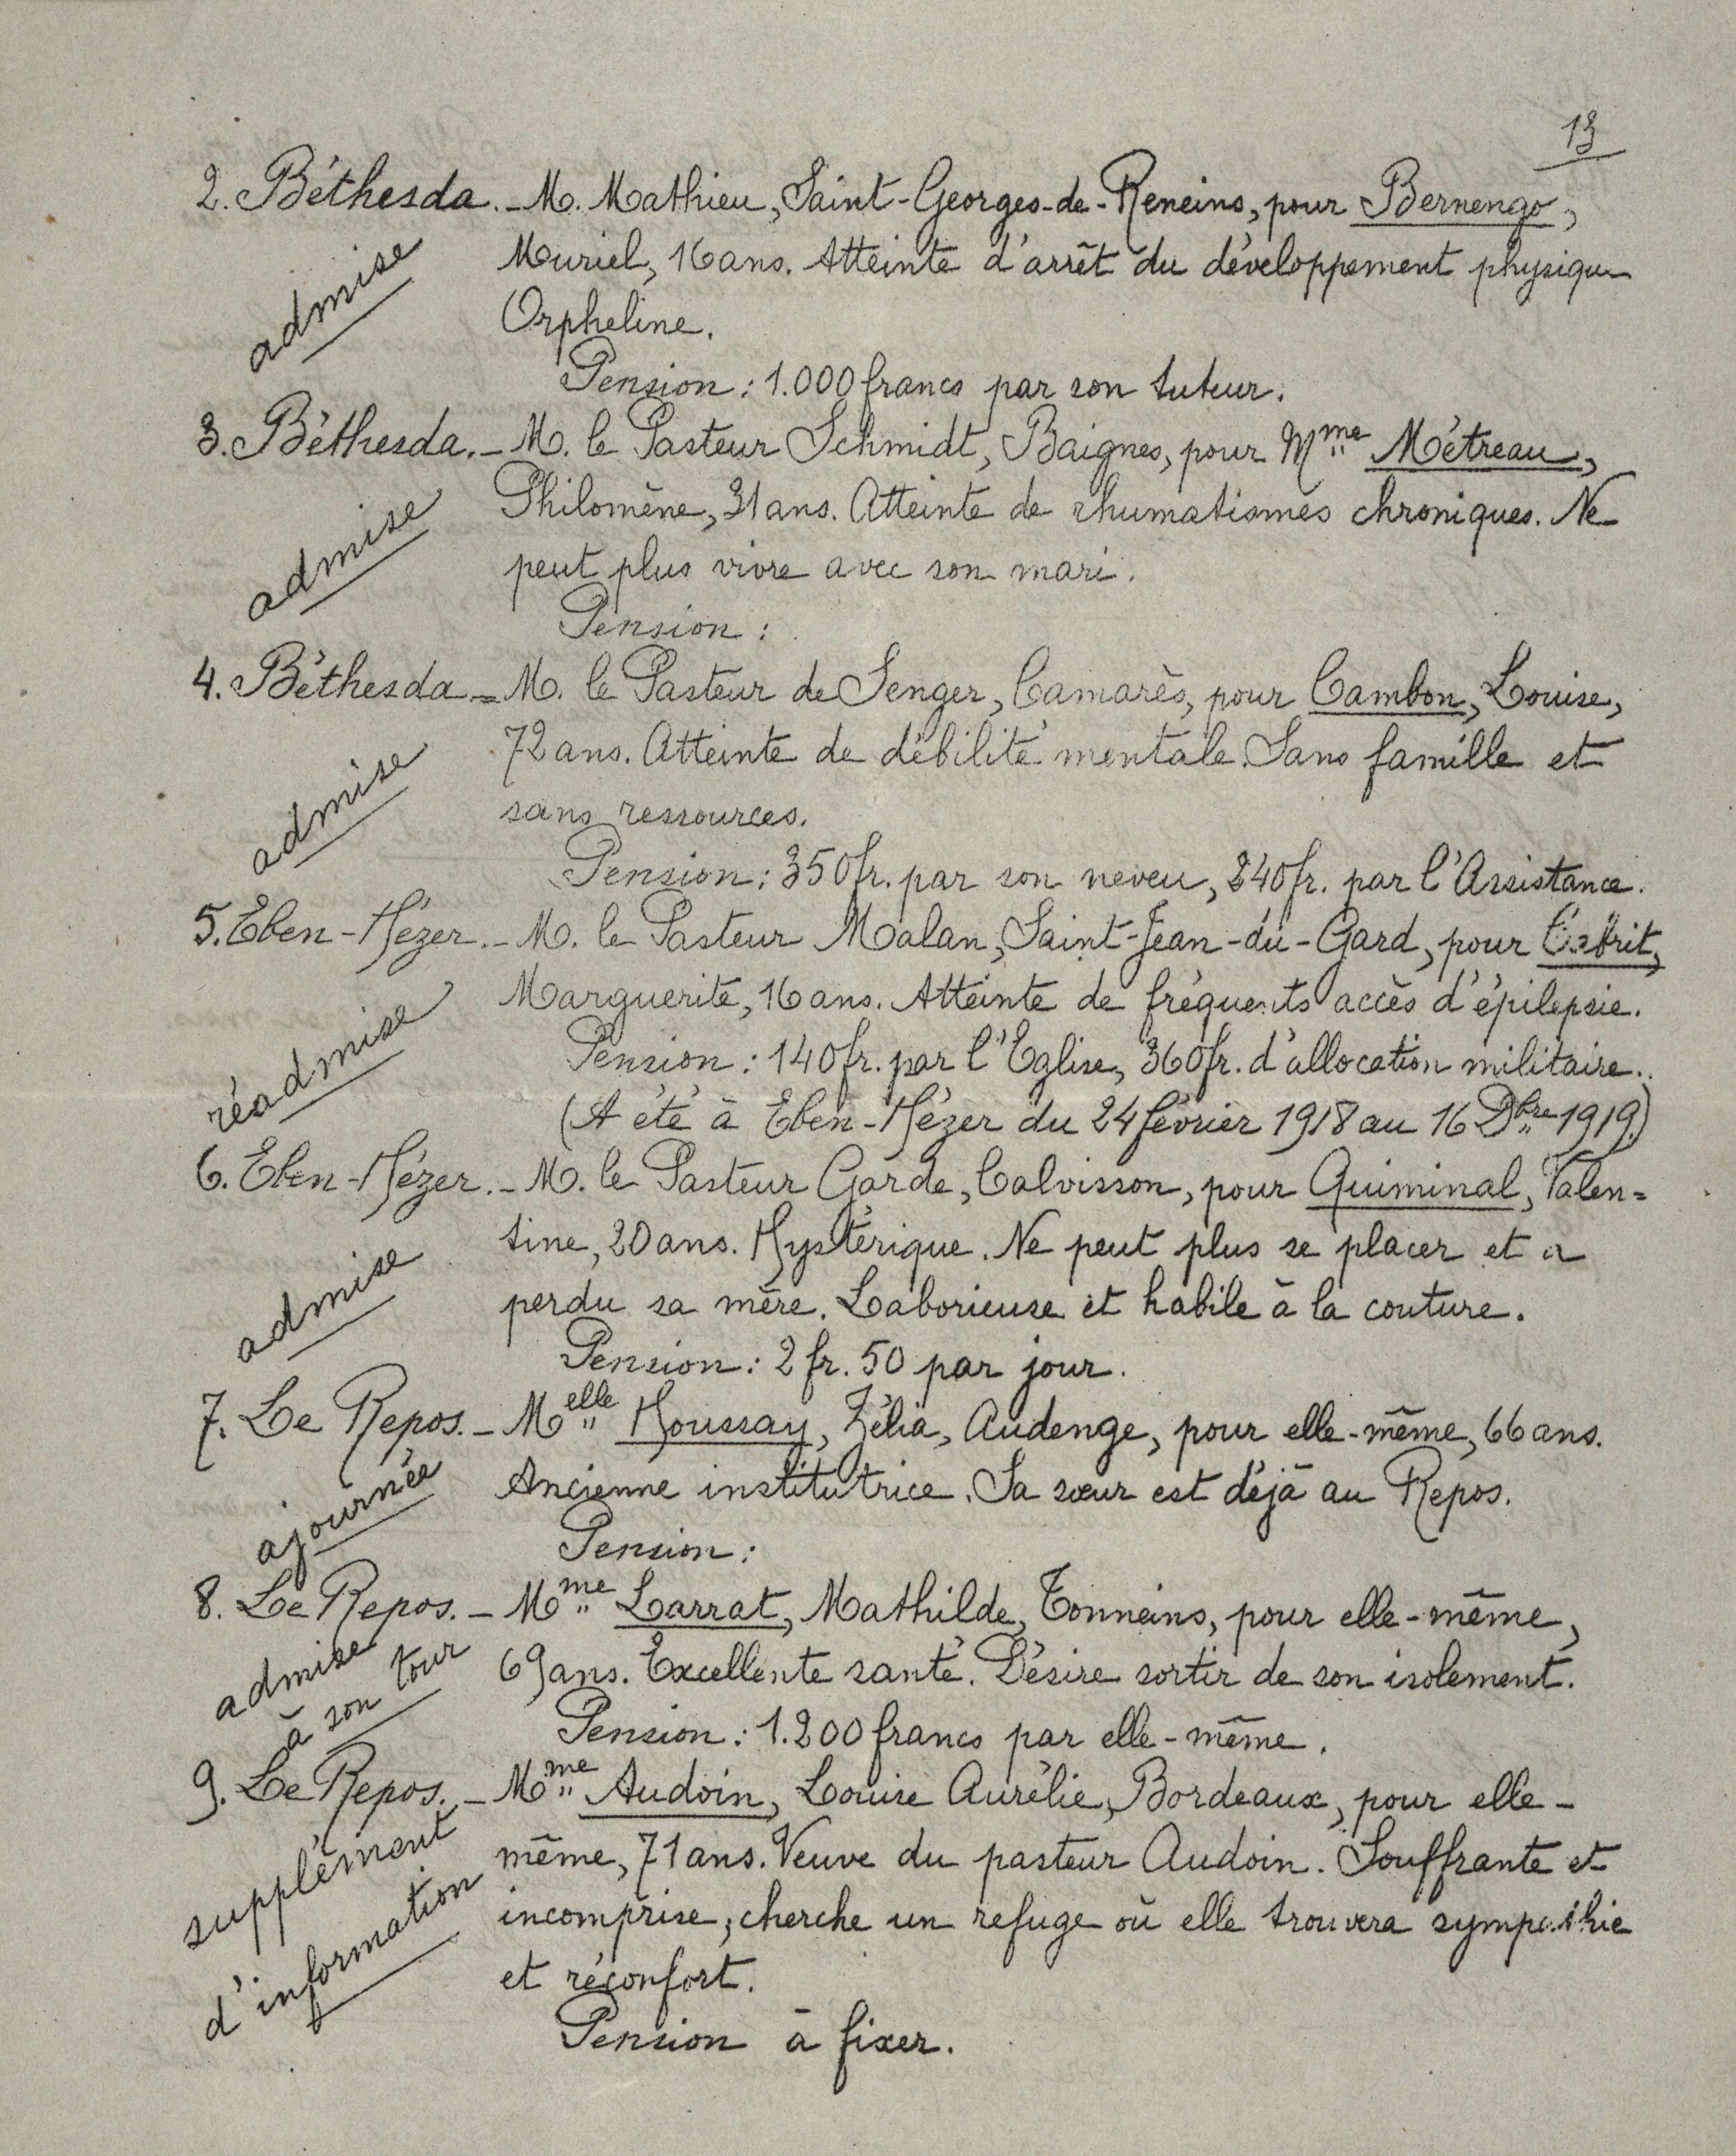 13
2. Béthesda. - M. Mathieu, Saint-Georges-de-Reneins, pour Bernengo,
admise
Muriel, 16 ans. Atteinte d'arrêt du développement physique
Orpheline.
Pension : 1.000 francs par son tuteur.
3. Béthesda. - M. le Pasteur Schmidt, Baignes, pour Mme Métreau,
admise
Philomène, 31 ans. Atteinte de rhumatismes chroniques. Ne
peut plus vivre avec son mari.
Pension :
4. Béthesda - M. le Pasteur de Senger, Camarès, pour Cambon, Louise,
admise
72 ans. Atteinte de débilité mentale. Sans famille et
sans ressources.
Pension : 350 fr. par son neveu, 240 fr. par l'Assistance.
5. Eben-Hézer. - M. le Pasteur Malan, Saint-Jean-du-Gard, pour
réadmise
Marguerite, 16 ans. Atteinte de fréquents accès d'épilepsie.
Pension : 140 fr. par l'Eglise, 360 fr. d'allocation militaire.
(A été à Eben-Hézer du 24 février 1918 au 16 Dbre 1919.)
6. Eben-Hézer. - M. le Pasteur Garde, Calvisson, pour Quiminal, Valen=
admise
tine, 20 ans. Hystérique. Ne peut plus se placer et a
perdu sa mère. Laborieuse et habile à la couture.
Pension : 2 fr. 50 par jour.
7. Le Repos. - Melle Houssay, Zélia, Audenge, pour elle-même, 66 ans.
ajournée
Ancienne institutrice. Sa sœur est déjà au Repos.
Pension :
8. Le Repos. - Mme Larrat, Mathilde, Tonneins, pour elle-même,
admise
à son tour
69 ans. Excellente santé. Désire sortir de son isolement.
Pension : 1.200 francs par elle-même.
9. Le Repos. - Mme Audoin, Louise Aurélie, Bordeaux, pour elle-
supplément
d'information
même, 71 ans. Veuve du pasteur Audoin. Souffrante et
incomprise, cherche un refuge où elle trouvera sympathie
et réconfort.
Pension à fixer.